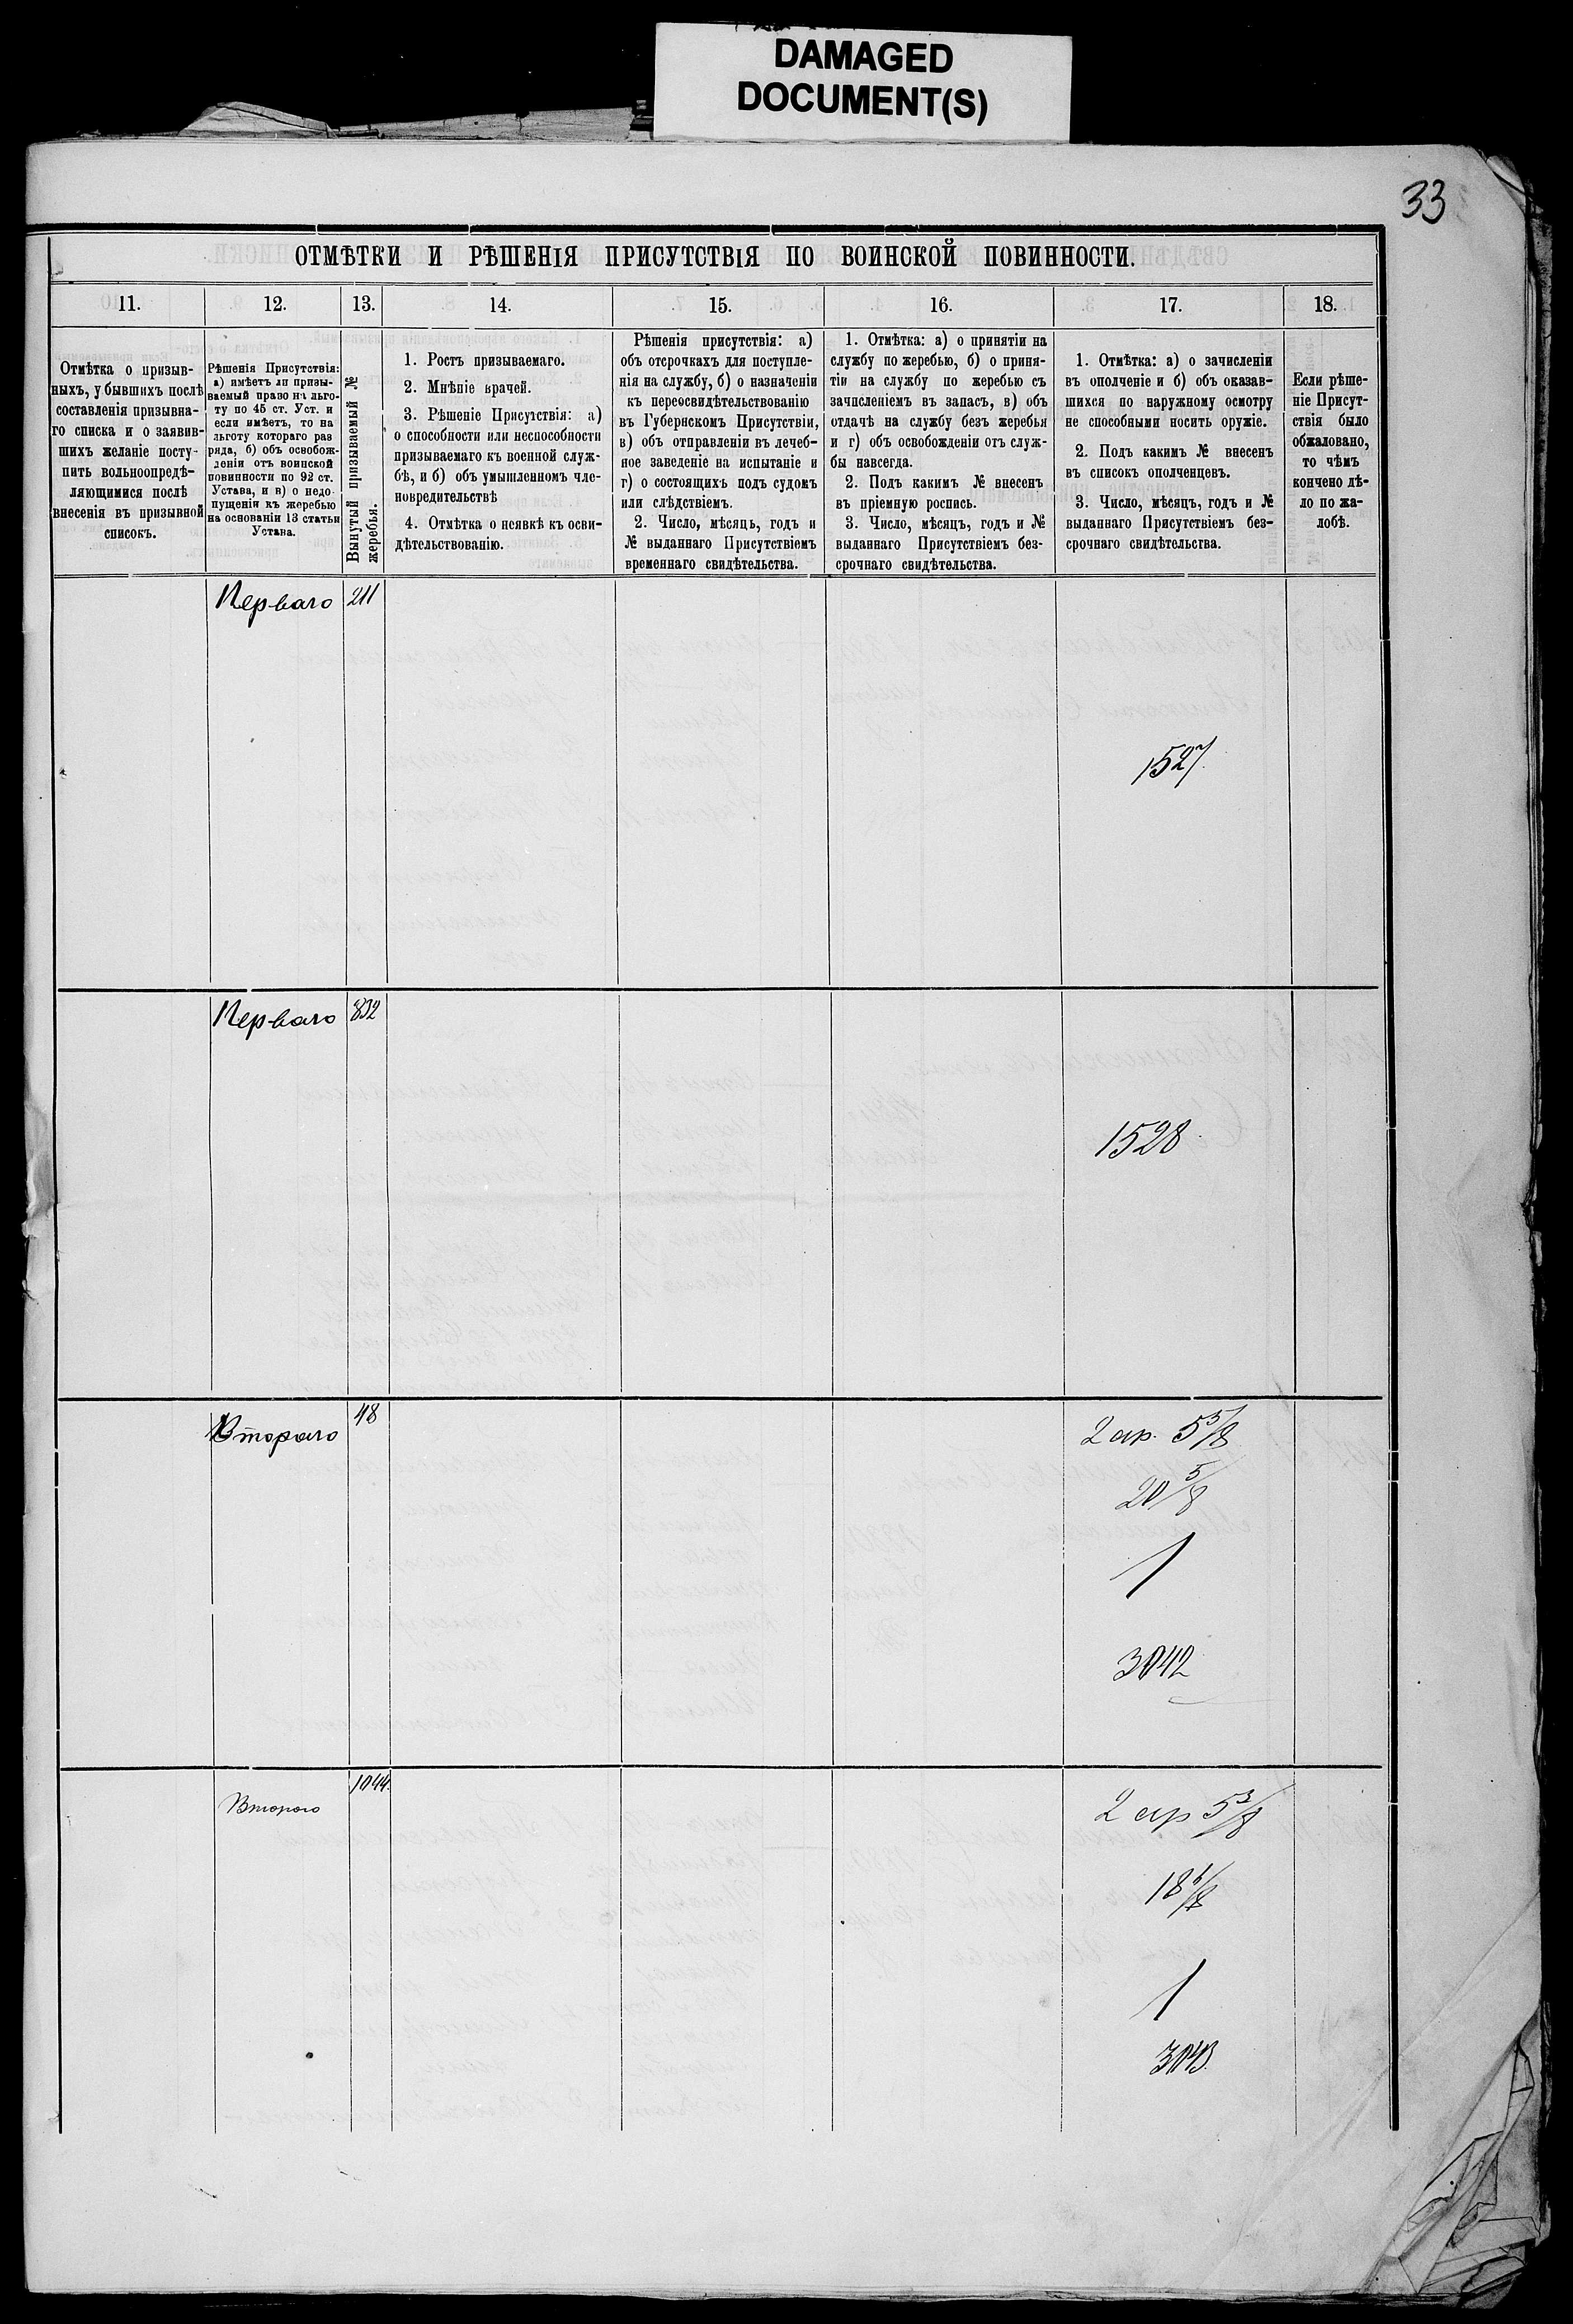 DAMAGED
DOCUMENT(S)
33
ОТМѢТКИ И РѢШЕНІЯ ПРИСУТСТВІЯ ПО ВОИНСКОЙ ПОВИННОСТИ.
11.
12.
13.
14.
15.
16.
17.
18.
Отмѣтка о призыв-
ныхъ, у бывшихъ послѣ
составленія призывна-
го списка и о заявив-
шихъ желаніе посту-
пить вольноопредѣ-
ляющимися послѣ
внесенія въ призывной
списокъ.
Рѣшенія Присутствія:
а) имѣетъ ли призы-
ваемый право на льго-
ту по 45 ст. Уст. и
если имѣетъ, то на
льготу котораго раз
ряда, б) объ освобож-
деніи отъ воинской
повинности по 92 ст.
Устава, и в) о недо-
пущеніи къ жеребью
на основаніи 13 статьи
Устава.
Вынутый призываемый №
жеребья.
1. Ростъ призываемаго.
2. Мнѣніе врачей.
3. Рѣшеніе Присутствія: а)
о способности или неспособности
призываемаго къ военной служ-
бѣ, и б) объ умышленномъ чле-
новредительствѣ
4. Отмѣтка о неявкѣ къ осви-
дѣтельствованію.
Рѣшенія присутствія: а)
объ отсрочкахъ для поступле-
нія на службу, б) о назначеніи
къ переосвидѣтельствованію
въ Губернскомъ Присутствіи,
в) объ отправленіи въ лечеб-
ное заведеніе на испытаніе и
г) о состоящихъ подъ судомъ
или слѣдствіемъ.
2. Число, мѣсяцъ, годъ и
№ выданнаго Присутствіемъ
временнаго свидѣтельства.
1. Отмѣтка: а) о принятіи на
службу по жеребью, б) о приня-
тіи на службу по жеребью съ
зачисленіемъ въ запасъ, в) объ
отдачѣ на службу безъ жеребья
и г) объ освобожденіи отъ служ-
бы навсегда.
2. Подъ какимъ № внесенъ
въ пріемную роспись.
3. Число, мѣсяцъ, годъ и №
выданнаго Присутствіемъ без-
срочнаго свидѣтельства.
1. Отмѣтка: а) о зачисленіи
въ ополченіе и б) объ оказав-
шихся по наружному осмотру
не способными носить оружіе.
2. Подъ какимъ № внесенъ
въ списокъ ополченцевъ.
3. Число, мѣсяцъ, годъ и №
выданнаго Присутствіемъ без-
срочнаго свидѣтельства.
Если рѣше-
ніе Присут-
ствія было
обжаловано,
то чѣмъ
кончено дѣ-
ло по жа-
лобѣ.
Перваго
211
1527
Перваго
832
1528
Втораго
48
2 ар. 5 5/8
20 5/8
1
3042
Второго
1044
2 ар 5 3/8
1
3043